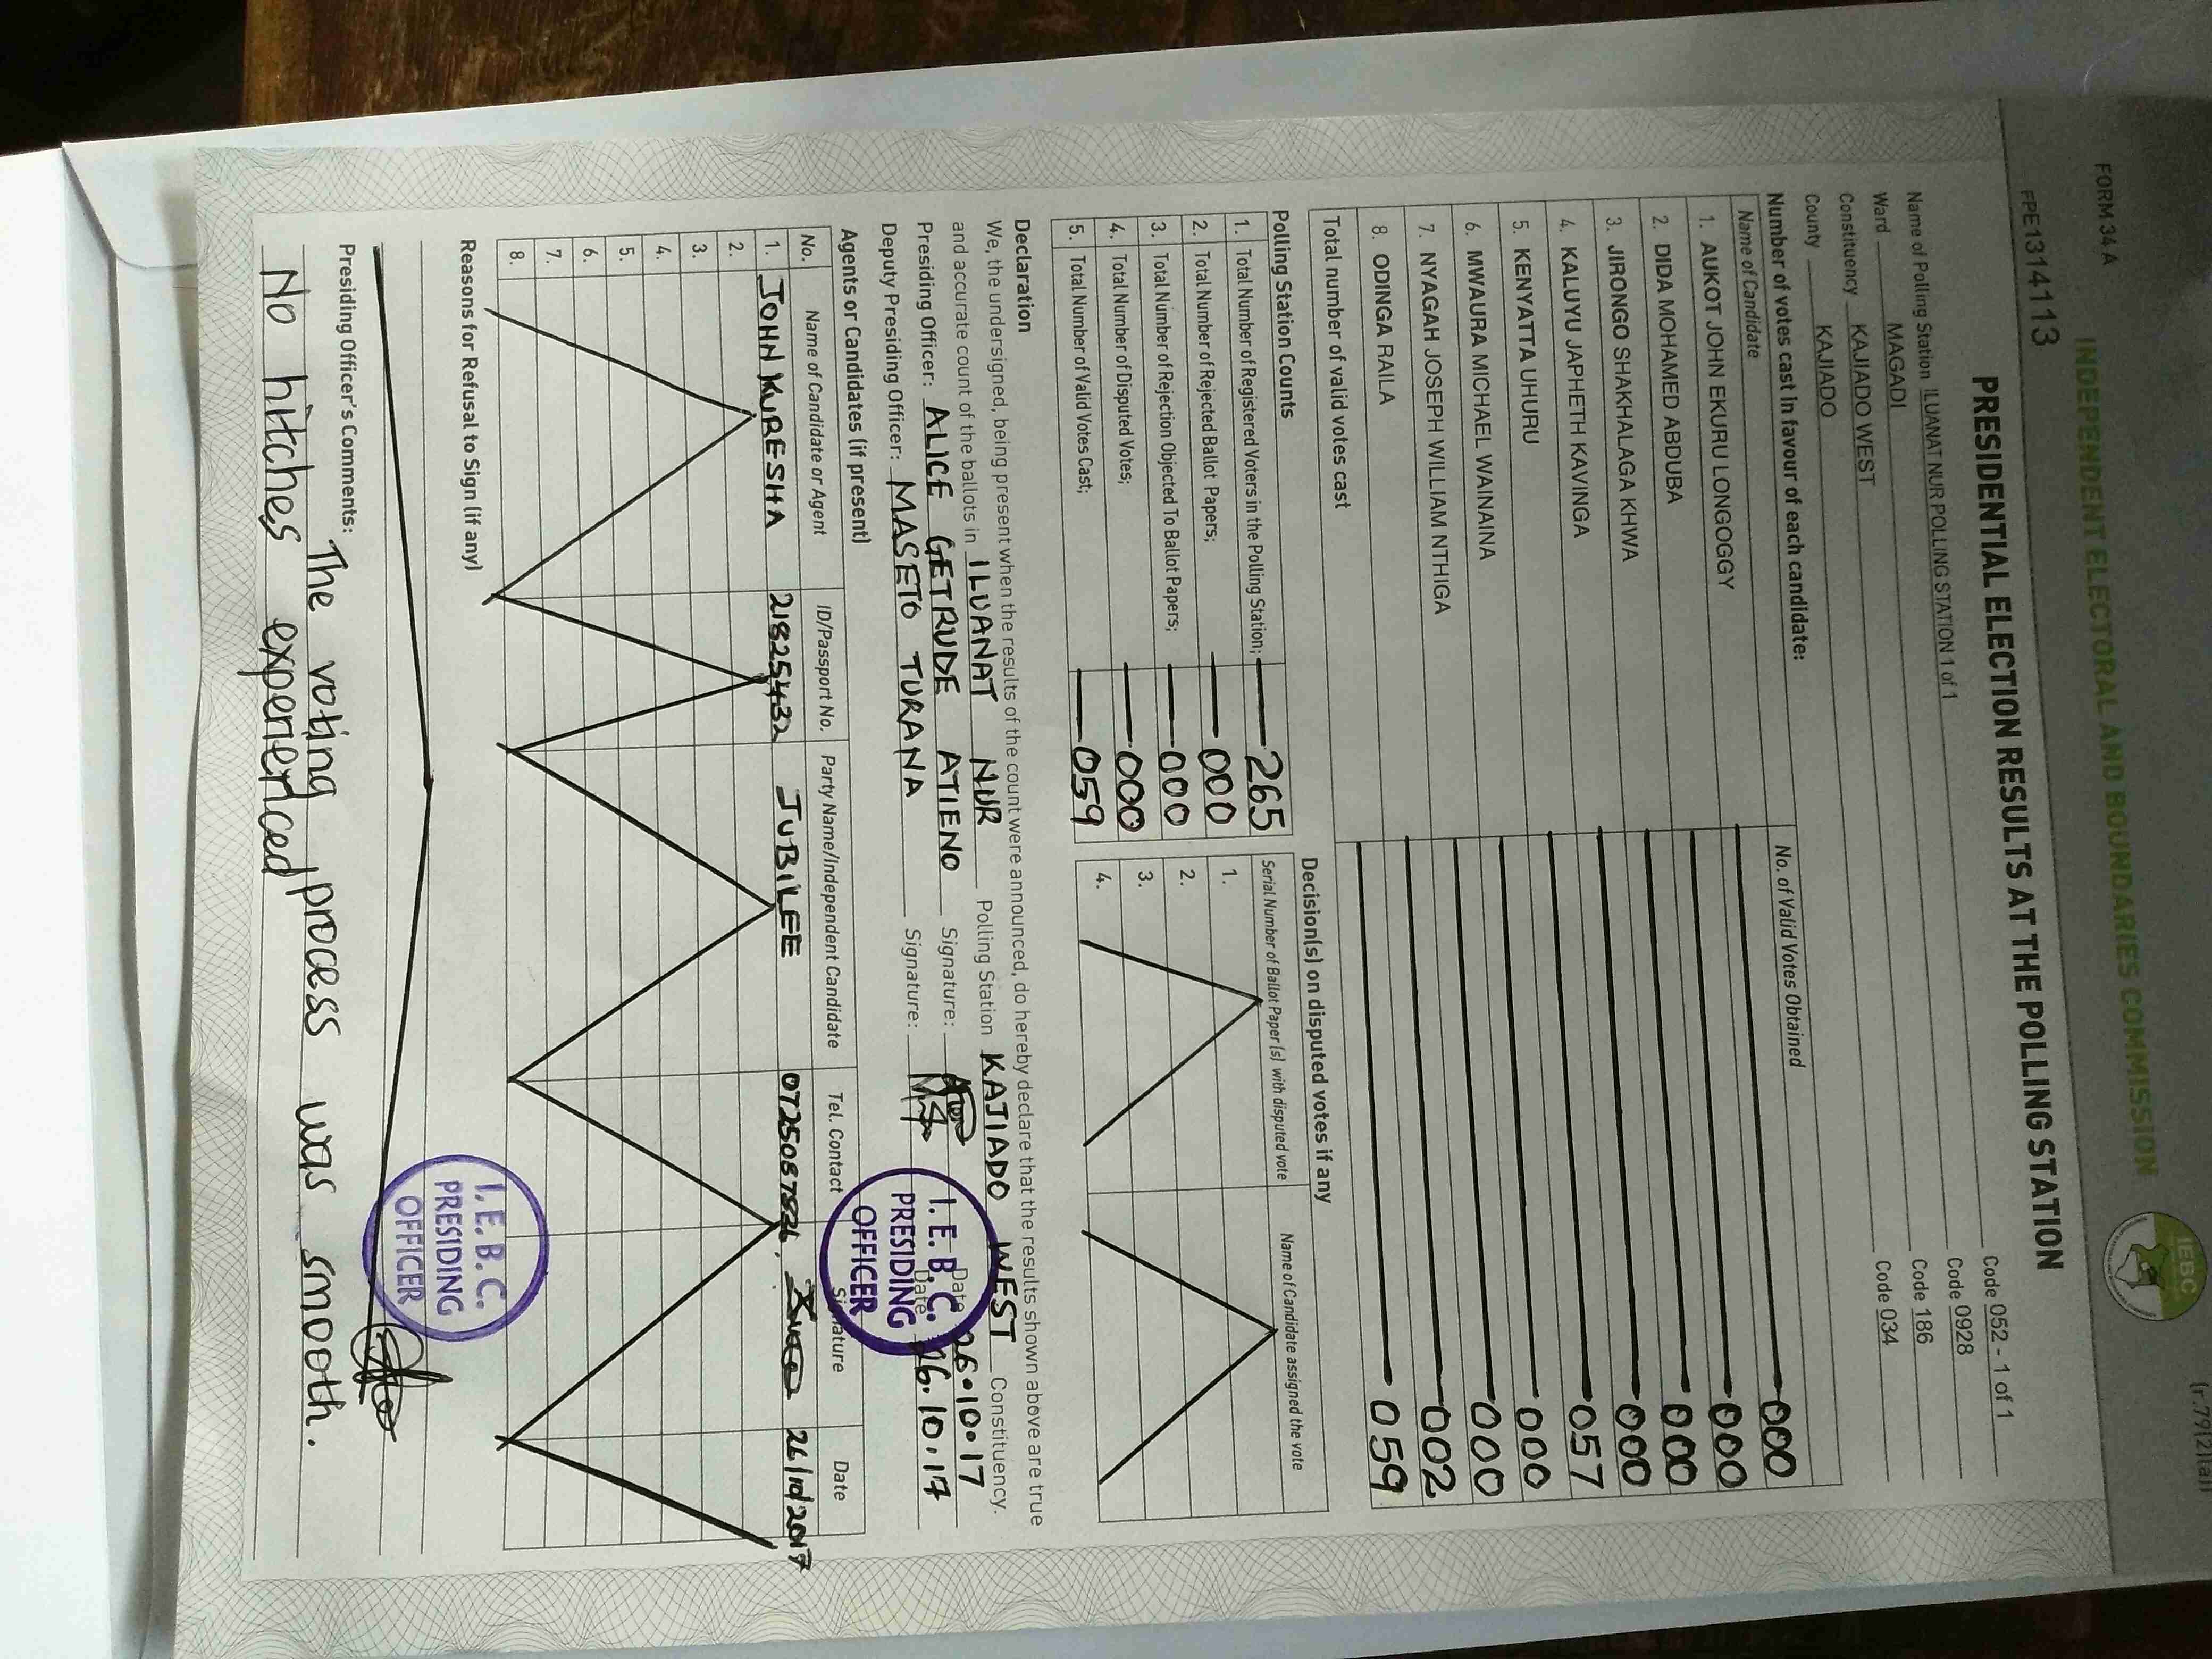 (r.79(2)(a))
FORM 34 A
INDEPENDENT ELECTORAL AND BOUNDARIES COMMISSION
IEBC
FPE1314113
PRESIDENTIAL ELECTION RESULTS AT THE POLLING STATION
Name of Polling Station ILUANAT NUR POLLING STATION 1 of 1 Code 052 - 1 of 1
Ward MAGADI Code 0928
Constituency KAJIADO WEST Code 186
County KAJIADO Code 034
Number of votes cast in favour of each candidate:
Name of Candidate No. of Valid Votes Obtained
1. AUKOT JOHN EKURU LONGOGGY 000
2. DIDA MOHAMED ABDUBA 000
3. JIRONGO SHAKHALAGA KHWA 000
4. KALUYU JAPHETH KAVINGA 000
5. KENYATTA UHURU 057
6. MWAURA MICHAEL WAINAINA 000
7. NYAGAH JOSEPH WILLIAM NTHIGA 000
8. ODINGA RAILA 002
Total number of valid votes cast 059
Polling Station Counts
1. Total Number of Registered Voters in the Polling Station; 265
2. Total Number of Rejected Ballot Papers; 000
3. Total Number of Rejection Objected To Ballot Papers; 000
4. Total Number of Disputed Votes; 000
5. Total Number of Valid Votes Cast; 059
Decision(s) on disputed votes if any
Serial Number of Ballot Paper (s) with disputed vote Name of Candidate assigned the vote
1.
2.
3.
4.
Declaration
We, the undersigned, being present when the results of the count were announced, do hereby declare that the results shown above are true
and accurate count of the ballots in ILUANAT NUR Polling Station KAJIADO WEST Constituency.
Presiding Officer: ALICE GETRUDE ATIENO Signature: Date 26.10.17
Deputy Presiding Officer: MASETO TURANA Signature: Date 26.10.17
I.E.B.C.
PRESIDING
OFFICER
Agents or Candidates (if present)
No. Name of Candidate or Agent ID/Passport No. Party Name/Independent Candidate Tel. Contact Signature Date
1. JOHN KURESHA 21825432 JUBILEE 26/10/2017
2.
3.
4.
5.
6.
7.
8.
Reasons for Refusal to Sign (if any)
I.E.B.C.
PRESIDING
OFFICER
Presiding Officer's Comments:
The voting process was smooth.
No hitches experienced